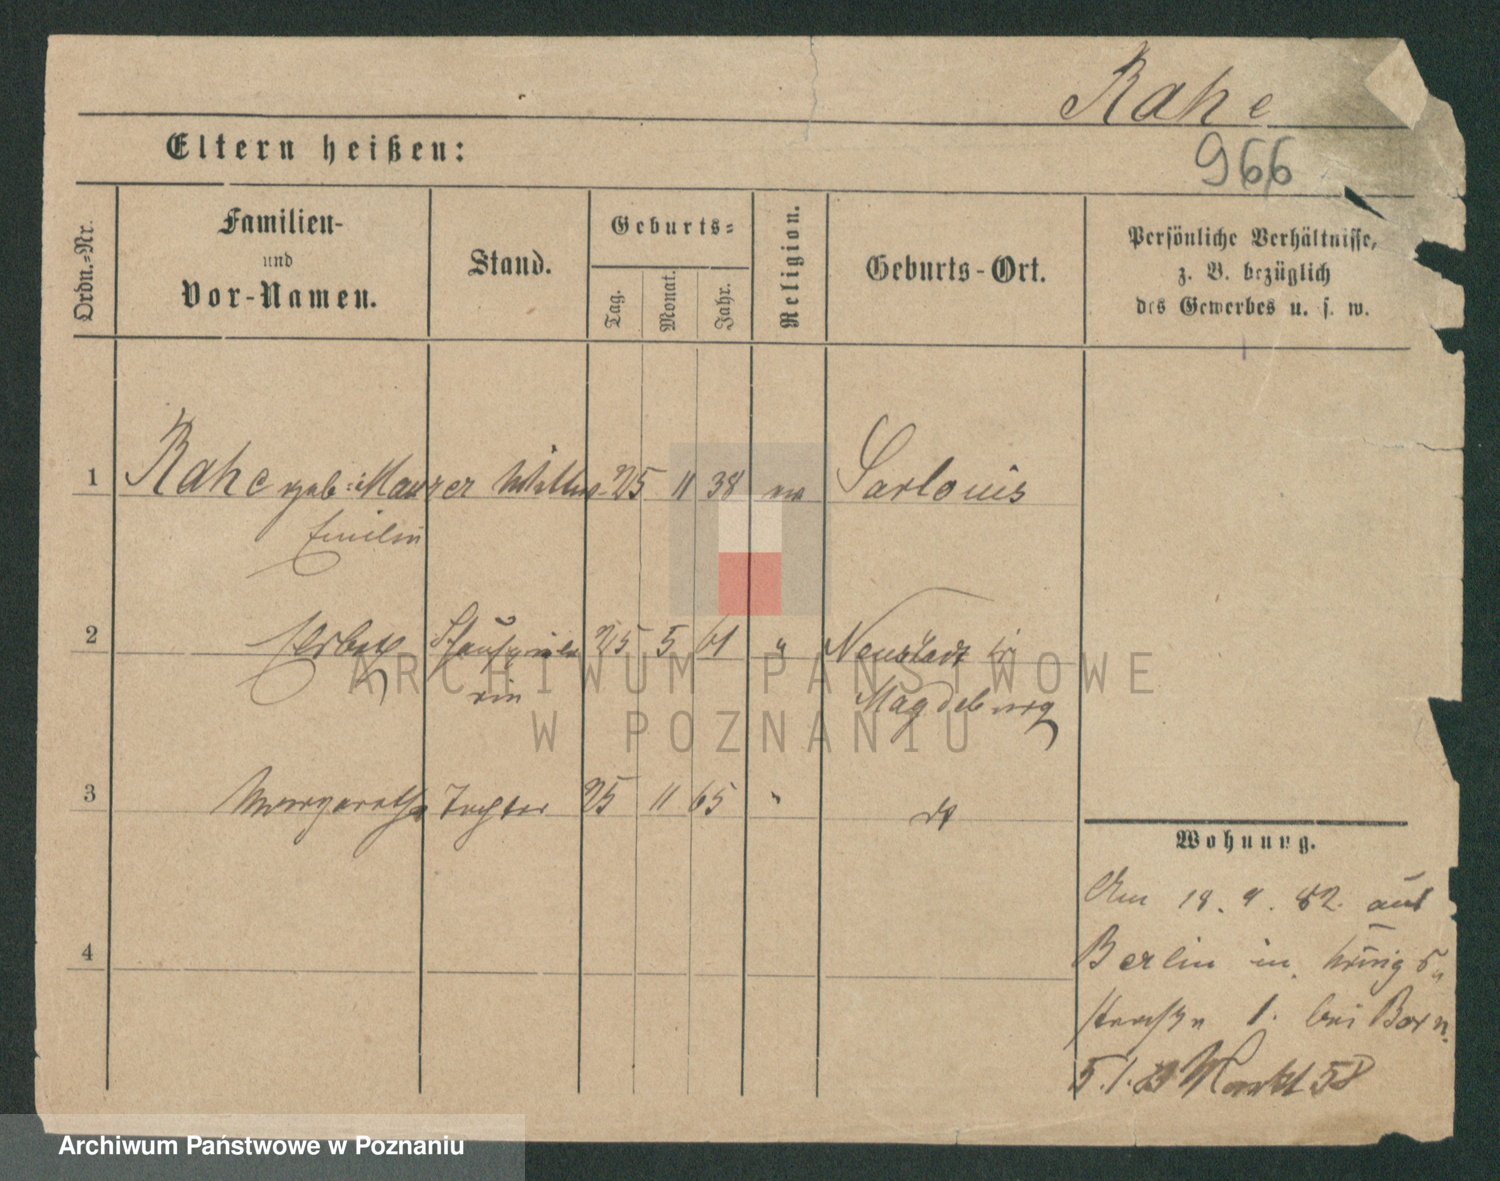 Rahe
966
Eltern heißen:
Ordn.-Nr.
Familien-
und
Vor-Namen.
Stand.
Geburts-
Tag.
Monat.
Jahr.
Religion.
Geburts-Ort.
Persönliche Verhältnisse,
z. B. bezüglich
des Gewerbes u. s. w.
1 Rahe geb: Maurer 25 11 38 Sarlouis
Emilie
2 25 5 61 " Neustadt
rin Magdeburg
3 Margarethe Tochter 25 11 65 " dt
4
Wohnung.
Am 18. 9. 82. aus
Berlin in Königs
straße 1. bei Born
5.1. Markt 58
ARCHIWUM PAŃSTWOWE
W POZNANIU
Archiwum Państwowe w Poznaniu